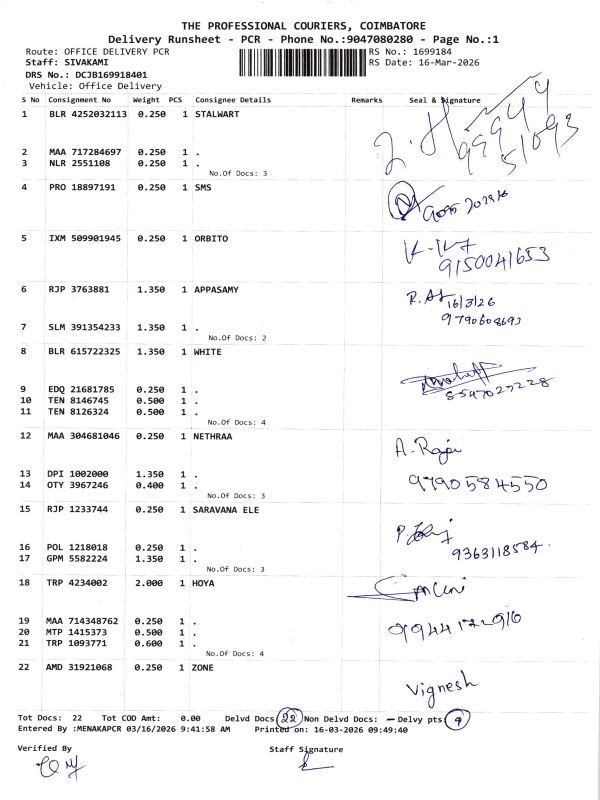 THE PROFESSIONAL COURIERS, COIMBATORE
Delivery Runsheet - PCR - Phone No.:9047080280 - Page No.:1
Route: OFFICE DELIVERY PCR RS No.: 1699184
Staff: SIVAKAMI RS Date: 16-Mar-2026
DRS No.: DCJB169918401
Vehicle: Office Delivery
S No Consignment No Weight PCS Consignee Details Remarks Seal & Signature
1 BLR 4252032113 0.250 1 STALWART
2 MAA 717284697 0.250 1 .
3 NLR 2551108 0.250 1 .
No.Of Docs: 3
4 PRO 18897191 0.250 1 SMS
5 IXM 509901945 0.250 1 ORBITO
9150041653
6 RJP 3763881 1.350 1 APPASAMY
16/3/26
9790608693
7 SLM 391354233 1.350 1 .
No.Of Docs: 2
8 BLR 615722325 1.350 1 WHITE
8547027228
9 EDQ 21681785 0.250 1 .
10 TEN 8146745 0.500 1 .
11 TEN 8126324 0.500 1 .
No.Of Docs: 4
12 MAA 304681046 0.250 1 NETHRAA
A. Raja
13 DPI 1002000 1.350 1 .
14 OTY 3967246 0.400 1 .
9790584550
No.Of Docs: 3
15 RJP 1233744 0.250 1 SARAVANA ELE
16 POL 1218018 0.250 1 .
9363118584.
17 GPM 5582224 1.350 1 .
No.Of Docs: 3
18 TRP 4234002 2.000 1 HOYA
19 MAA 714348762 0.250 1 .
20 MTP 1415373 0.500 1 .
994417-916
21 TRP 1093771 0.600 1 .
No.Of Docs: 4
22 AMD 31921068 0.250 1 ZONE
Vignesh
Tot Docs: 22 Tot COD Amt: 0.00 Delvd Docs: 22 Non Delvd Docs: – Delvy pts: 9
Entered By :MENAKAPCR 03/16/2026 9:41:58 AM Printed on: 16-03-2026 09:49:40
Verified By Staff Signature